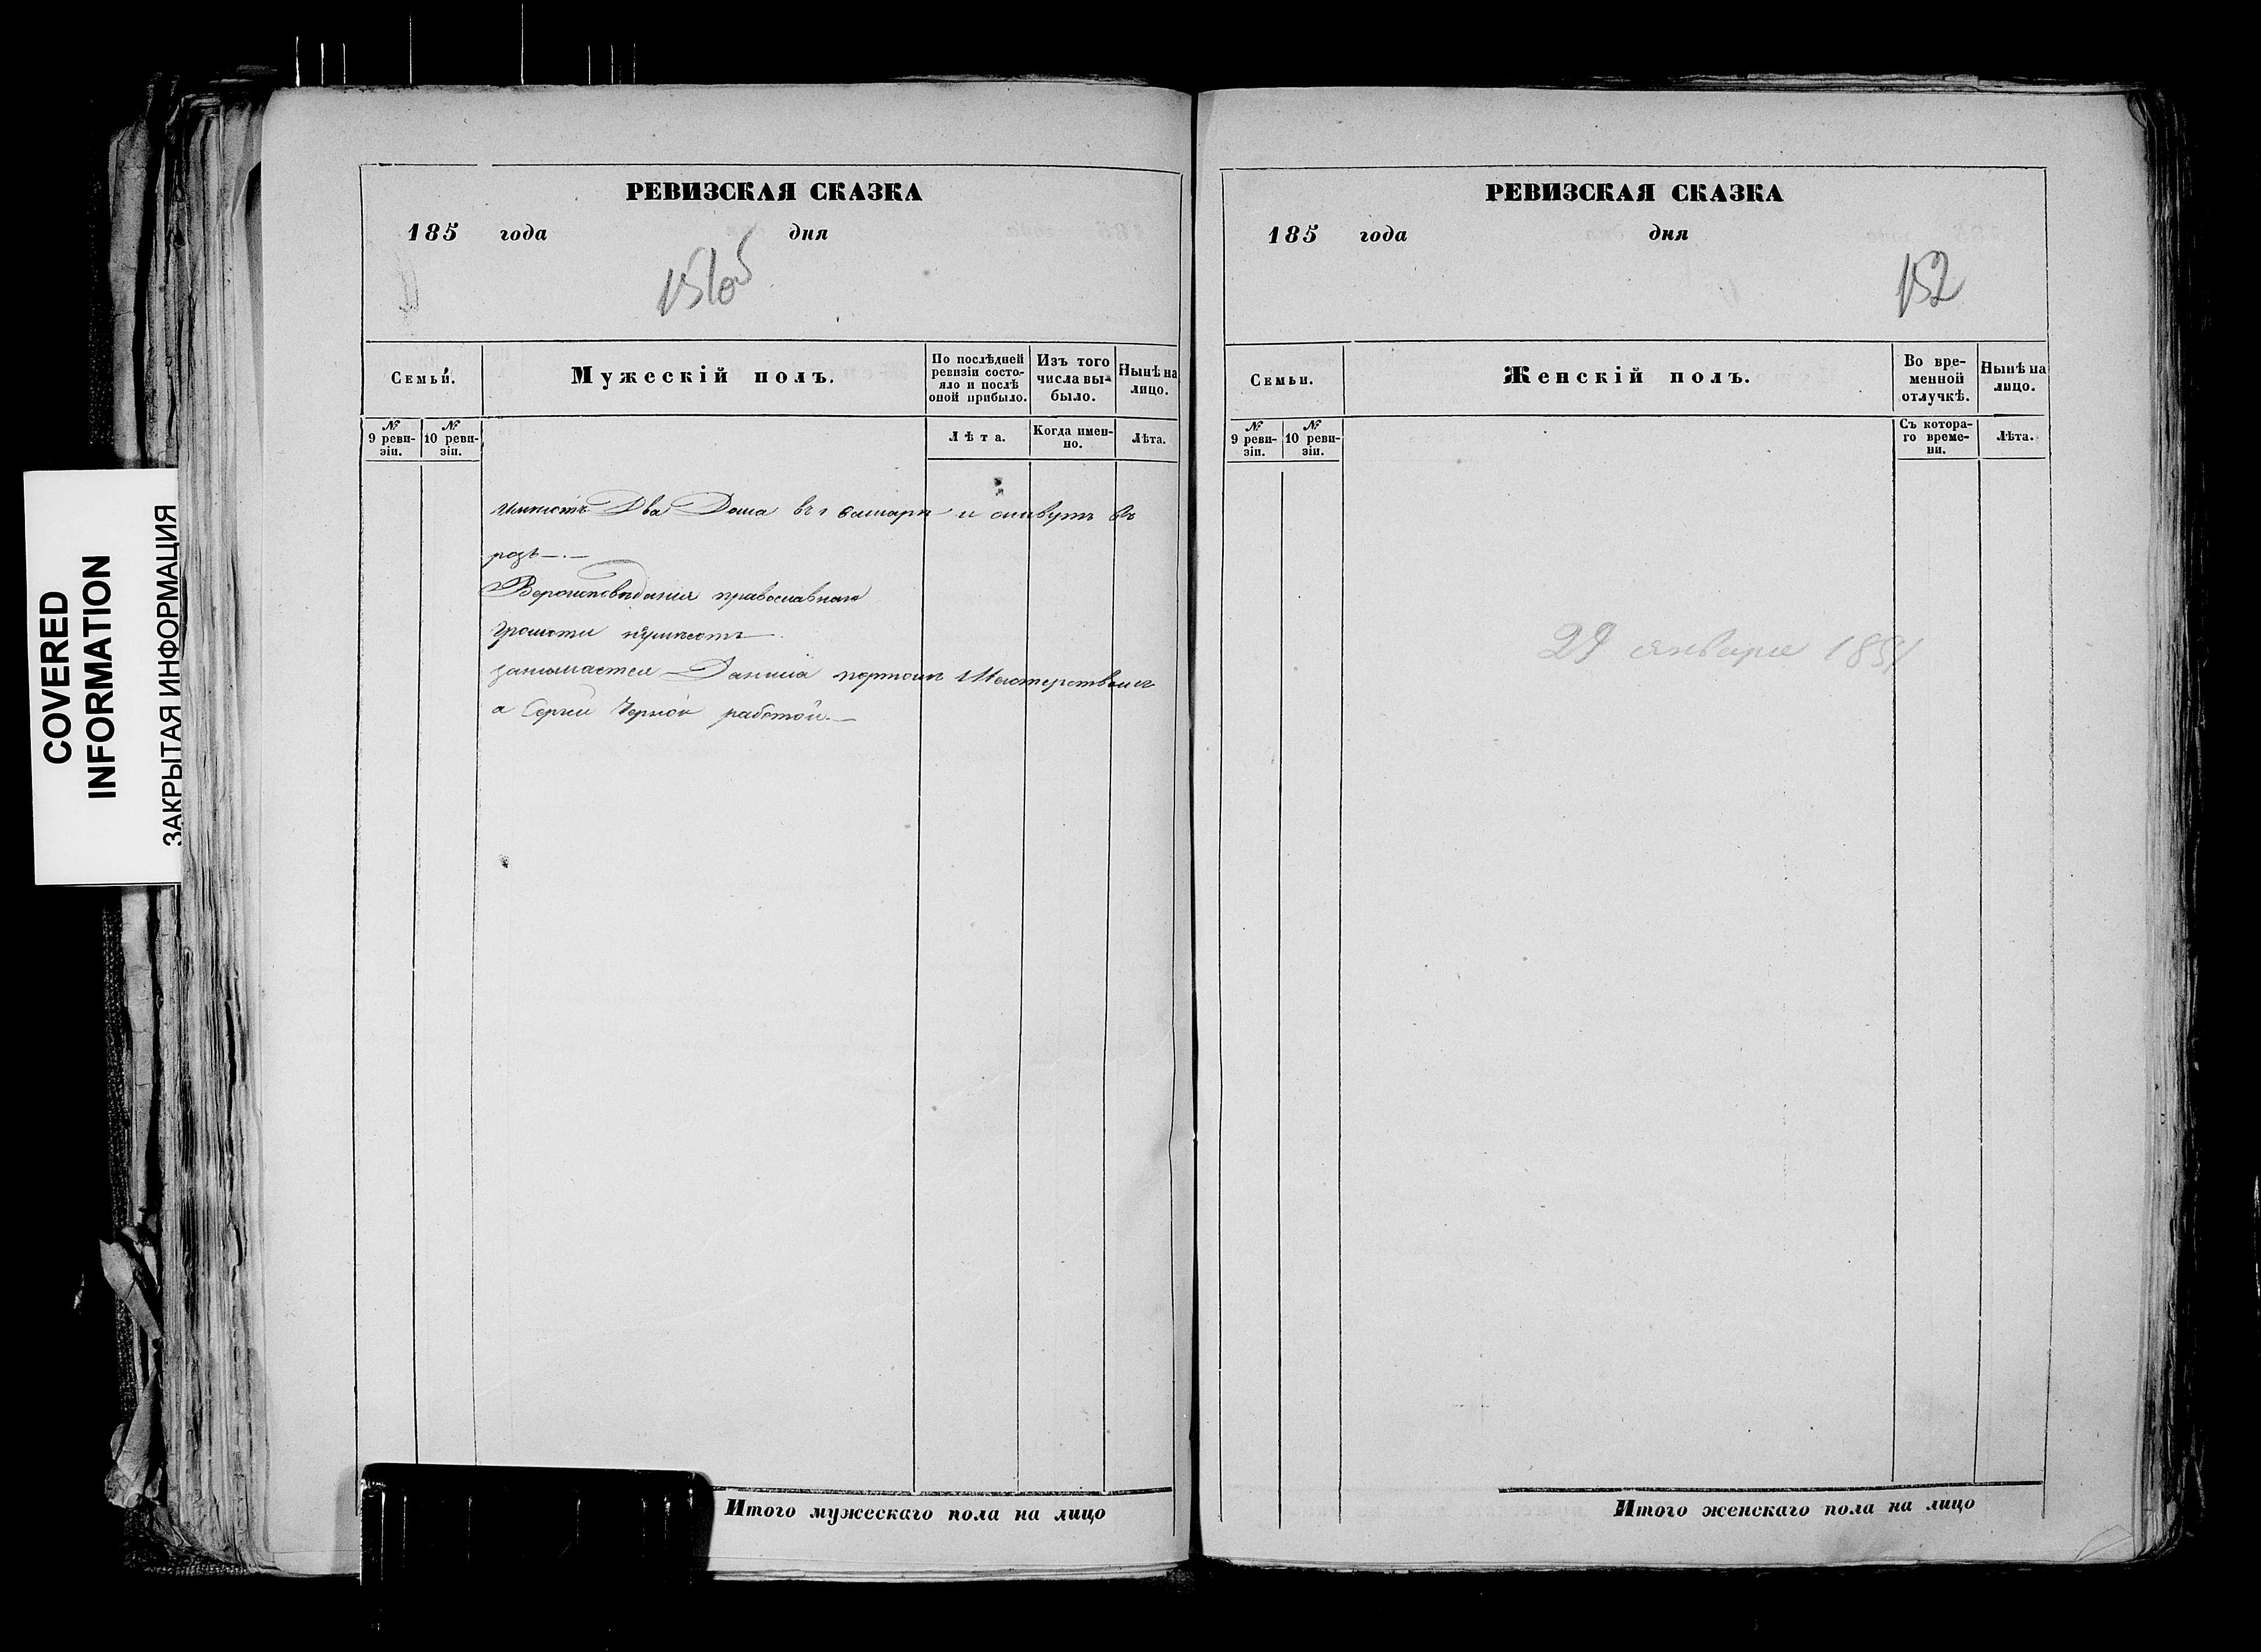 COVERED
INFORMATION
ЗАКРЫТАЯ ИНФОРМАЦИЯ
РЕВИЗСКАЯ СКАЗКА
185 года дня
151об
Семьи.
Мужескій полъ.
По послѣдней ревизіи состо-
яло и послѣ
оной прибыло.
Изъ того
числа вы-
было.
Нынѣ на
лицо.
№
9 реви-
зіи.
№
10 реви-
зіи.
Лѣта.
Когда имен-
но.
Лѣта.
имеютъ Два Дома въ г Самарѣ и живутъ въ
розь
Вероисповѣданія православнаго
грамоти
занимается Данила портнымъ Мастерствомъ
а Сергей Черной работой.
Итого мужескаго пола на лицо
РЕВИЗСКАЯ СКАЗКА
185 года дня
152
Семьи.
Женскій полъ.
Во вре-
менной
отлучкѣ.
Нынѣ на
лицо.
№
9 реви-
зіи.
№
10 реви-
зіи.
Съ котора-
го време-
ни.
Лѣта.
января
Итого женскаго пола на лицо